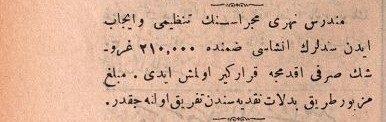 مندرس نهری مجراسنك تنظیمی و ایجاب
ایدن سدلرك انشاسی ضمننده ٢١٠,٠٠٠ غرو-
شك صرفی اقدمجه قرارگیر اولمش ایدی . مبلغ
مزبور طریق بدلات نقدیه سندن تفریق اولنه جقدر.